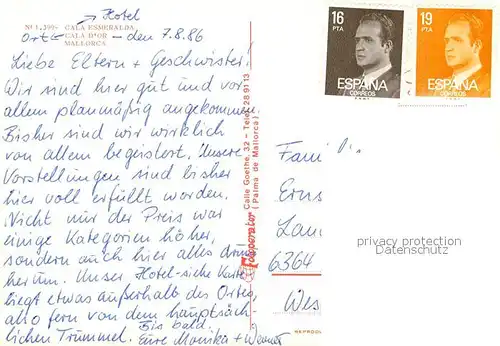 → Hotel
Nº 1.399 CALA ESMERALDA
Ort ← CALA D'OR
MALLORCA
- den 7.8.86
Liebe Eltern + Geschwister!
Wir sind hier gut und vor
allem planmäßig angekommen.
Bisher sind wir wirklich
von allem begeistert. Unsere
Vorstellungen sind bisher
hier voll erfüllt worden.
Nicht nur der Preis war
einige Kategorien höher,
sondern auch hier alles drum
herum. Unser Hotel - siehe Karte
liegt etwas außerhalb des Ortes,
also fern von dem hauptsäch-
lichen Trummel. Bis bald.
Eure Monika + Werner
Calle Goethe, 32 - Telef. 28 91 13
(Palma de Mallorca)
16
PTA
ESPAÑA
CORREOS
19
PTA
ESPAÑA
CORREOS
Fami
Erns
Lau
6364
Wes
privacy protection
Datenschutz